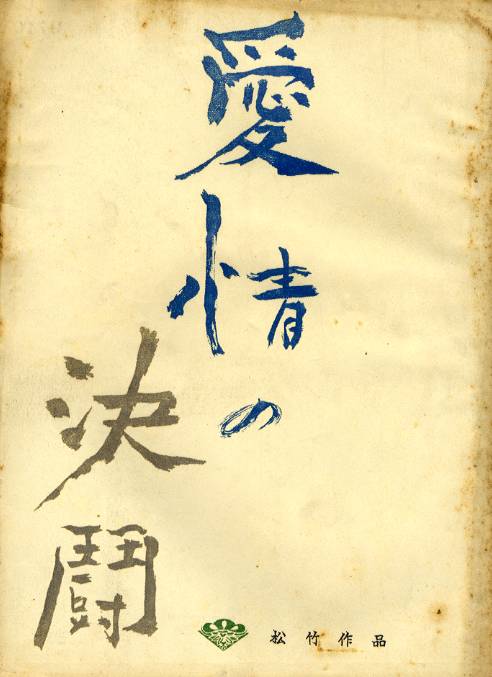 愛情の
決鬪
松竹作品